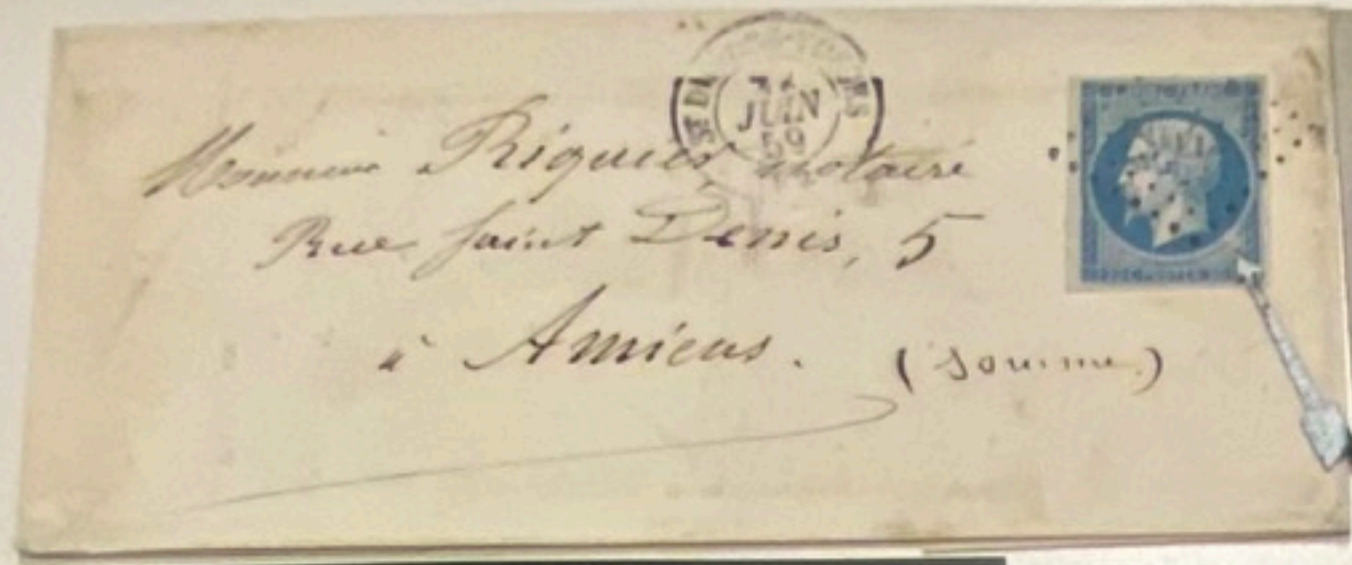 JUIN
59
Monsieur Riquier notaire
Rue Saint Denis, 5
à Amiens. (Somme)